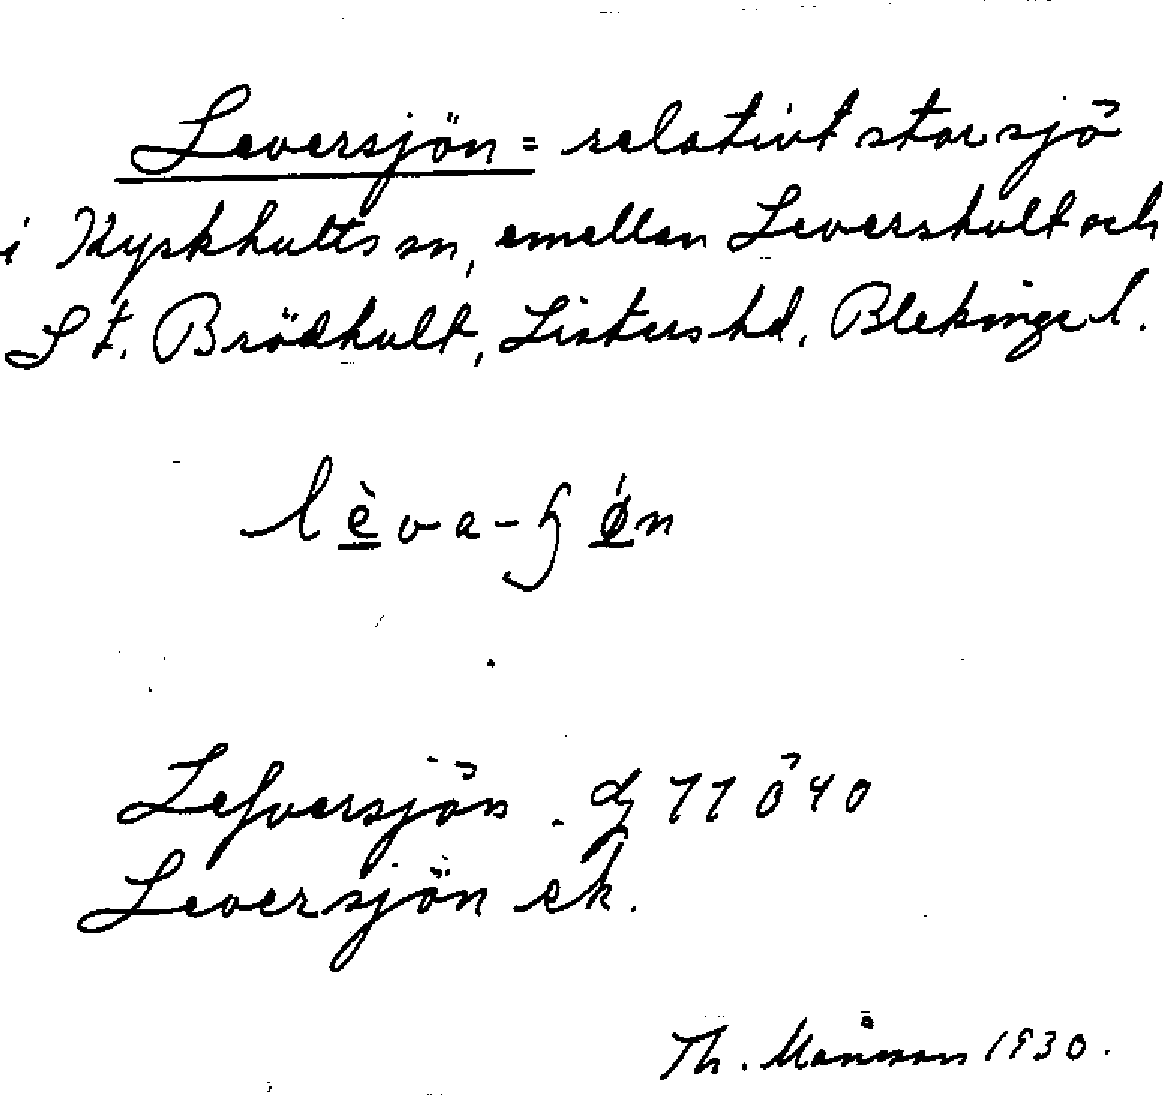 Leversjön = relativt stor sjö
i Kyrkhults sn, emellan Levershult och
St. Brödhult, Listers hd. Blekinge l.
lèva-ɧǿn
Lefversjön. 77 ö 40
Leversjön ek.
Th. Månsson 1930.